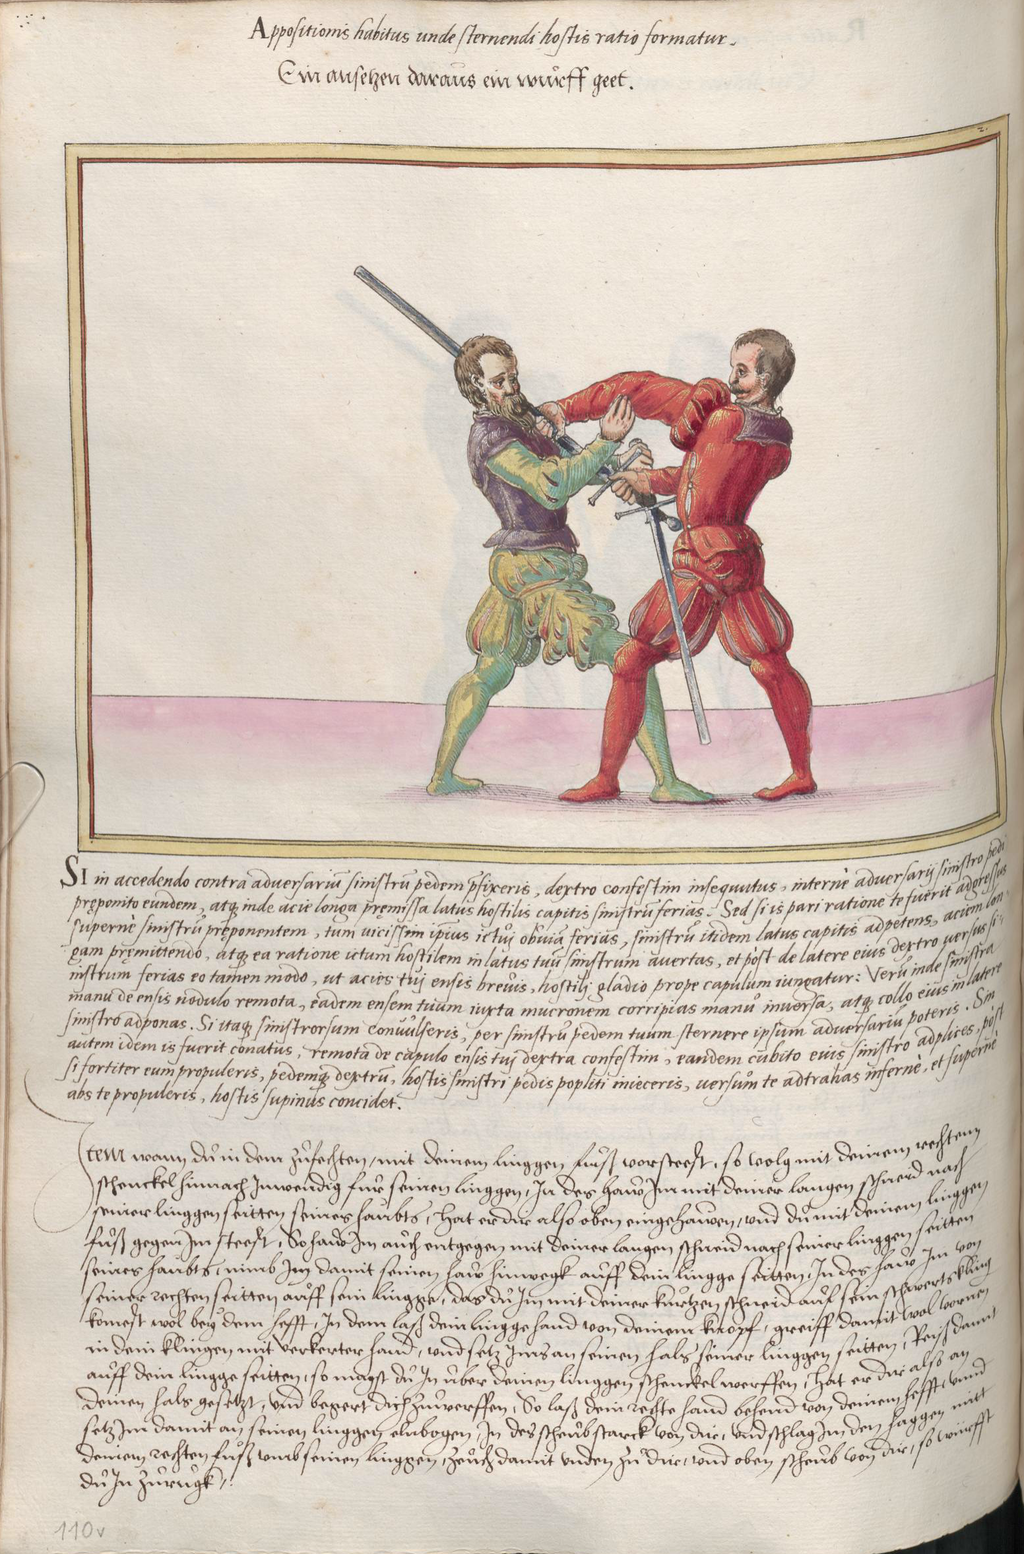 Appositionis habitus unde sternendi hostis ratio formatur.
Ein ansetzen daraus ein wurff geet.
2.
SI in accedendo contra adversariũ sinistrũ pedem p̃fixeris, dextro confestim insequutus, internè adversarij sinistro pedi
pręponito eundem, atq, inde acie longa premissa latus hostilis capitis sinistrũ ferias. Sed si is pari ratione te fuerit adgressus
supernè sinistrũ pręponentem, tum vicissim ipsius ictuj obviã ferius, sinistrũ itidem latus capitis adpetens, aciem lon-
gam premittendo, atq, ea ratione ictum hostilem in latus tuũ sinistrum avertas, et post de latere eius dextro versus si-
nistrum ferias eo tamen modo, ut acies tuj ensis brevis, hostilj gladio prope capulum iungatur: Verũ inde sinistra
manu de ensis nodulo remota, eadem ensem tuum iuxta mucronem corripias manu inversa, atq, collo eius in latere
sinistro adponas. Si itaq, sinistrorsum convulseris, per sinistrũ pedem tuum sternere ipsum adversariũ poteris. Sin
autem idem is fuerit conatus, remota de capulo ensis tuj dextra confestim, eandem cubito eius sinistro adplices, post
si fortiter eum propuleris, pedemq, dextrũ, hostis sinistri pedis popliti inieceris, versum te adtrahas infernè, et supernè
abs te propuleris, hostis supinus concidet.
Item wann du in dem zufechten, mit deinem linggen fuß vorsteest, so volg mit deinem rechten
schenckel hinnach Inwendig fur seinen linggen, In des haw Im mit deiner langen schneid nach
seiner linggen seitten seines haubts, hat er dir also oben eingehawen, und du mit deinem linggen
fuß gegen Im steest, So haw Im auch entgegen mit deiner langen schneid nach seiner linggen seitten
seines haubts, nimb Im damit seinen haw hinwegk auff dein lingge seitten, In des haw Im von
seiner rechten seitten auff sein lingge, das du Im mit deiner kurtzen schneid auf sein schwertsklingen
komest wol bey dem hefft, In dem laß dein lingge hand von deinem knopf, greiff damit wol vornen
in dein klingen mit verkerter hand, und setz Ims an seinen hals seiner linggen seitten, Reiß dann
auff dein lingge seitten, so magst du In uber deinen linggen schenckel werffen, hat er dir also an
deinen hals gesetzt, und begert dich zuwerffen, So laß dein rechte hand behend von deinem hefft, und
setz Im damit an seinen linggen elnbogen, In des scheub starck von dir, und schlag In den haggen mitt
deinem rechten fuß umb seinen linggen, zeuch damit unden zu dir, und oben scheub von dir, so wurffst
du In zurugk.
110v